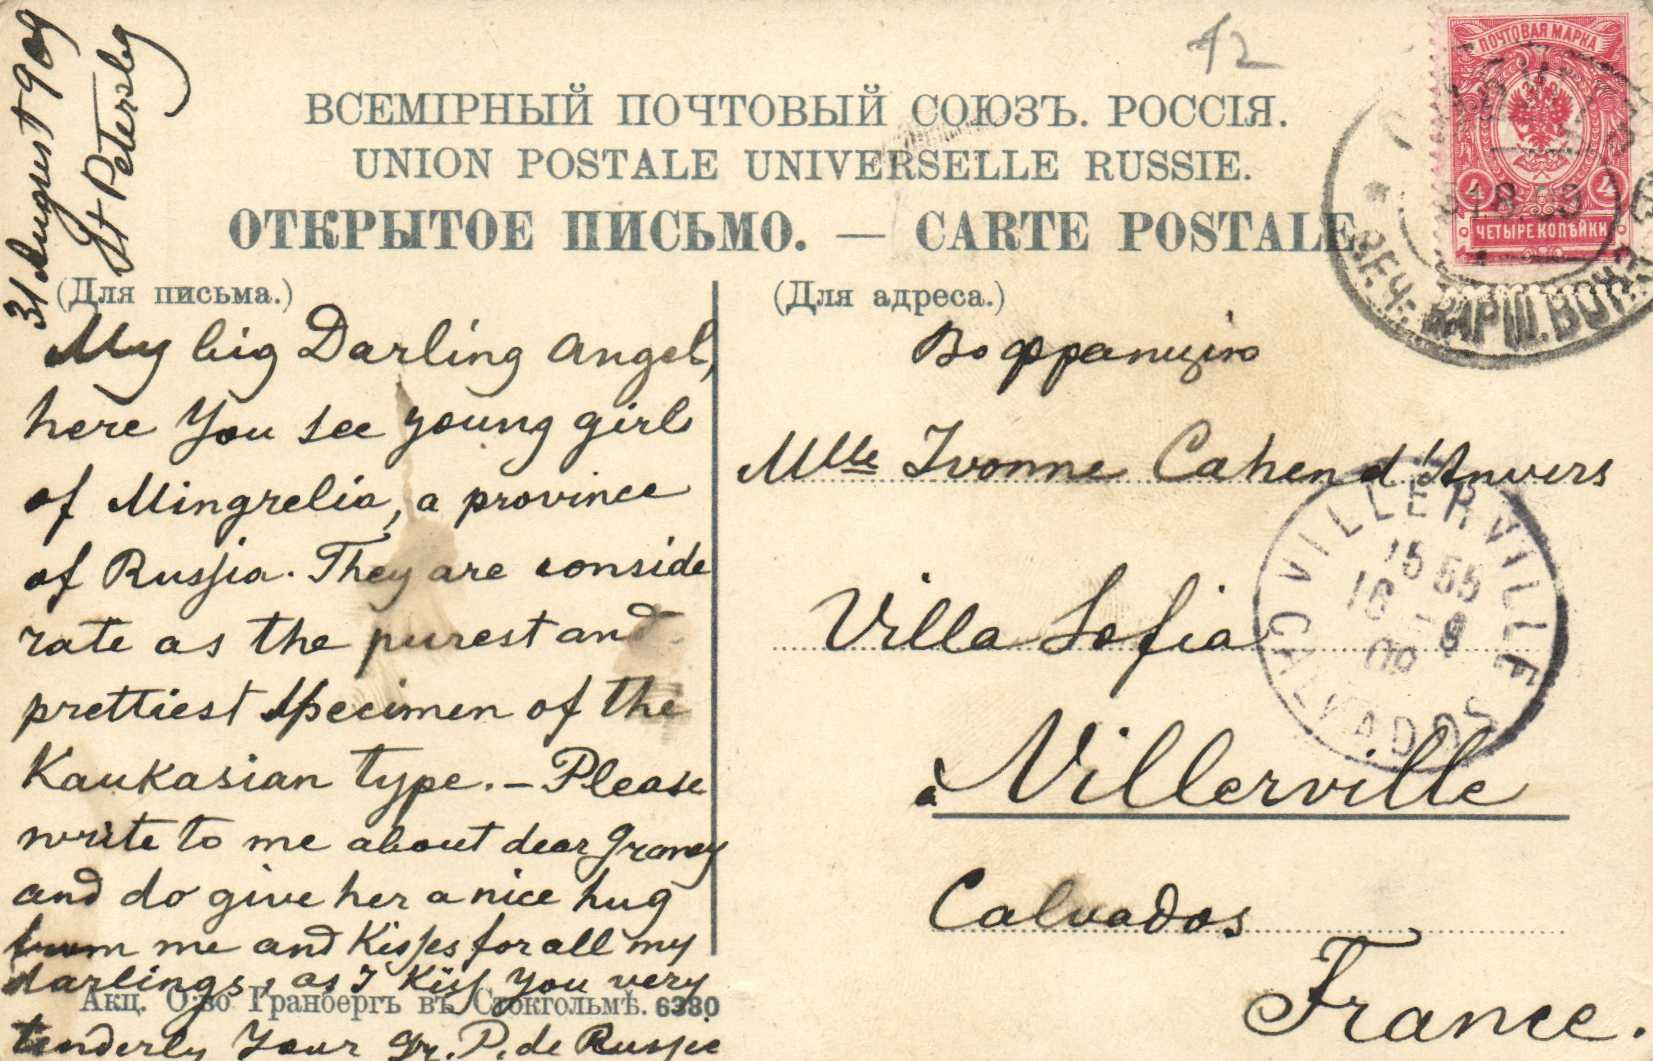 12
31 August 909
St Petersbg
ВСЕМІРНЫЙ ПОЧТОВЫЙ СОЮЗЪ. РОССІЯ.
UNION POSTALE UNIVERSELLE RUSSIE.
ОТКРЫТОЕ ПИСЬМО. — CARTE POSTALE
ПОЧТОВАЯ МАРКА
4 4
ЧЕТЫРЕ КОПѢЙКИ
(Для письма.)
My big Darling angel,
here You see young girls
of Mingrelia, a province
of Russia. They are conside
rate as the purest and
prettiest specimen of the
Kaukasian type. — Please
write to me about dear Graney
and do give her a nice hug
from me and Kisses for all my
darlings, as I Kiss You very
tenderly Your Gr. P. de Russie
Акц. О-во Гранбергъ въ Стокгольмѣ. 6380
(Для адреса.)
Во Францію
Mlle Ivonne Cahen d'Anvers
Villa Sofia
à Villerville
Calvados
France.
VILLERVILLE
15 55
16 -8
09
CALVADOS